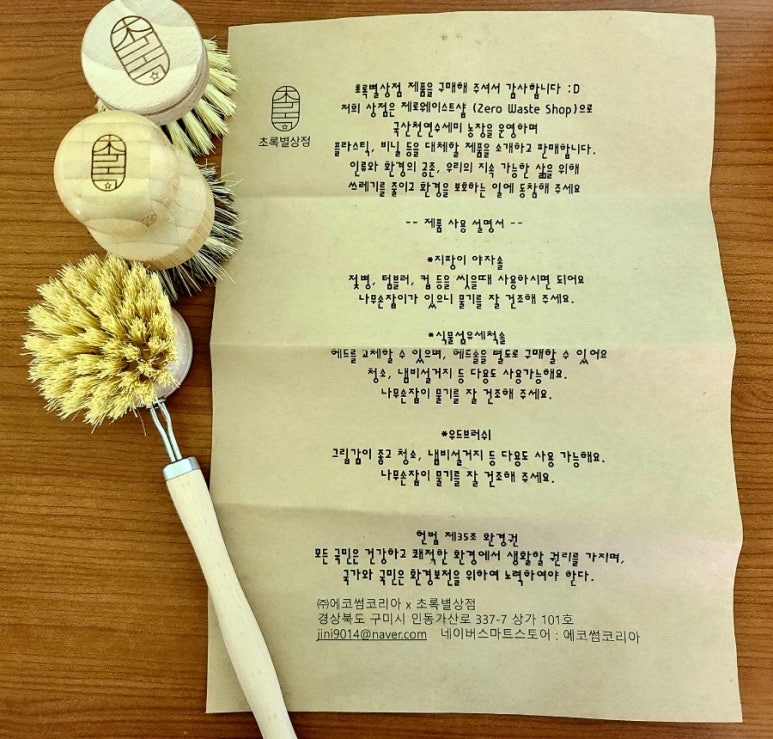 초록별상점
초록별상점 제품을 구매해 주셔서 감사합니다 :D
저희 상점은 제로웨이스트샵 (Zero Waste Shop)으로
국산천연수세미 농장을 운영하며
플라스틱, 비닐 등을 대체할 제품을 소개하고 판매합니다.
인류와 환경의 공존, 우리의 지속 가능한 삶을 위해
쓰레기를 줄이고 환경을 보호하는 일에 동참해 주세요
-- 제품 사용 설명서 --
*지팡이 야자솔
젖병, 텀블러, 컵 등을 씻을때 사용하시면 되어요
나무손잡이가 있으니 물기를 잘 건조해 주세요.
*식물섬유세척솔
헤드를 교체할 수 있으며, 헤드솔을 별도로 구매할 수 있어요
청소, 냄비설거지 등 다용도 사용가능해요.
나무손잡이 물기를 잘 건조해 주세요.
*우드브러쉬
그립감이 좋고 청소, 냄비설거지 등 다용도 사용 가능해요.
나무손잡이 물기를 잘 건조해 주세요.
헌법 제35조 환경권
모든 국민은 건강하고 쾌적한 환경에서 생활할 권리를 가지며,
국가와 국민은 환경보전을 위하여 노력하여야 한다.
㈜에코썸코리아 x 초록별상점
경상북도 구미시 인동가산로 337-7 상가 101호
jini9014@naver.com 네이버스마트스토어 : 에코썸코리아